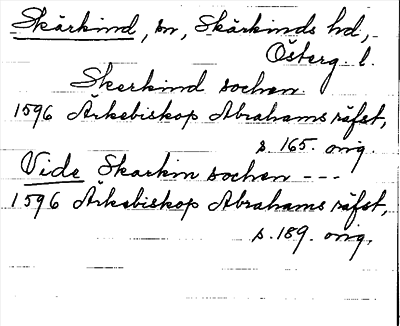 Skärkind, sn, Skärkinds hd,
Österg. l.
Skerkind sochen.
1596 Ärkebiskop Abrahams räfst,
s. 165. orig.
Vide Skarkin sochen ---
1596 Ärkebiskop Abrahams räfst,
s. 189. orig.